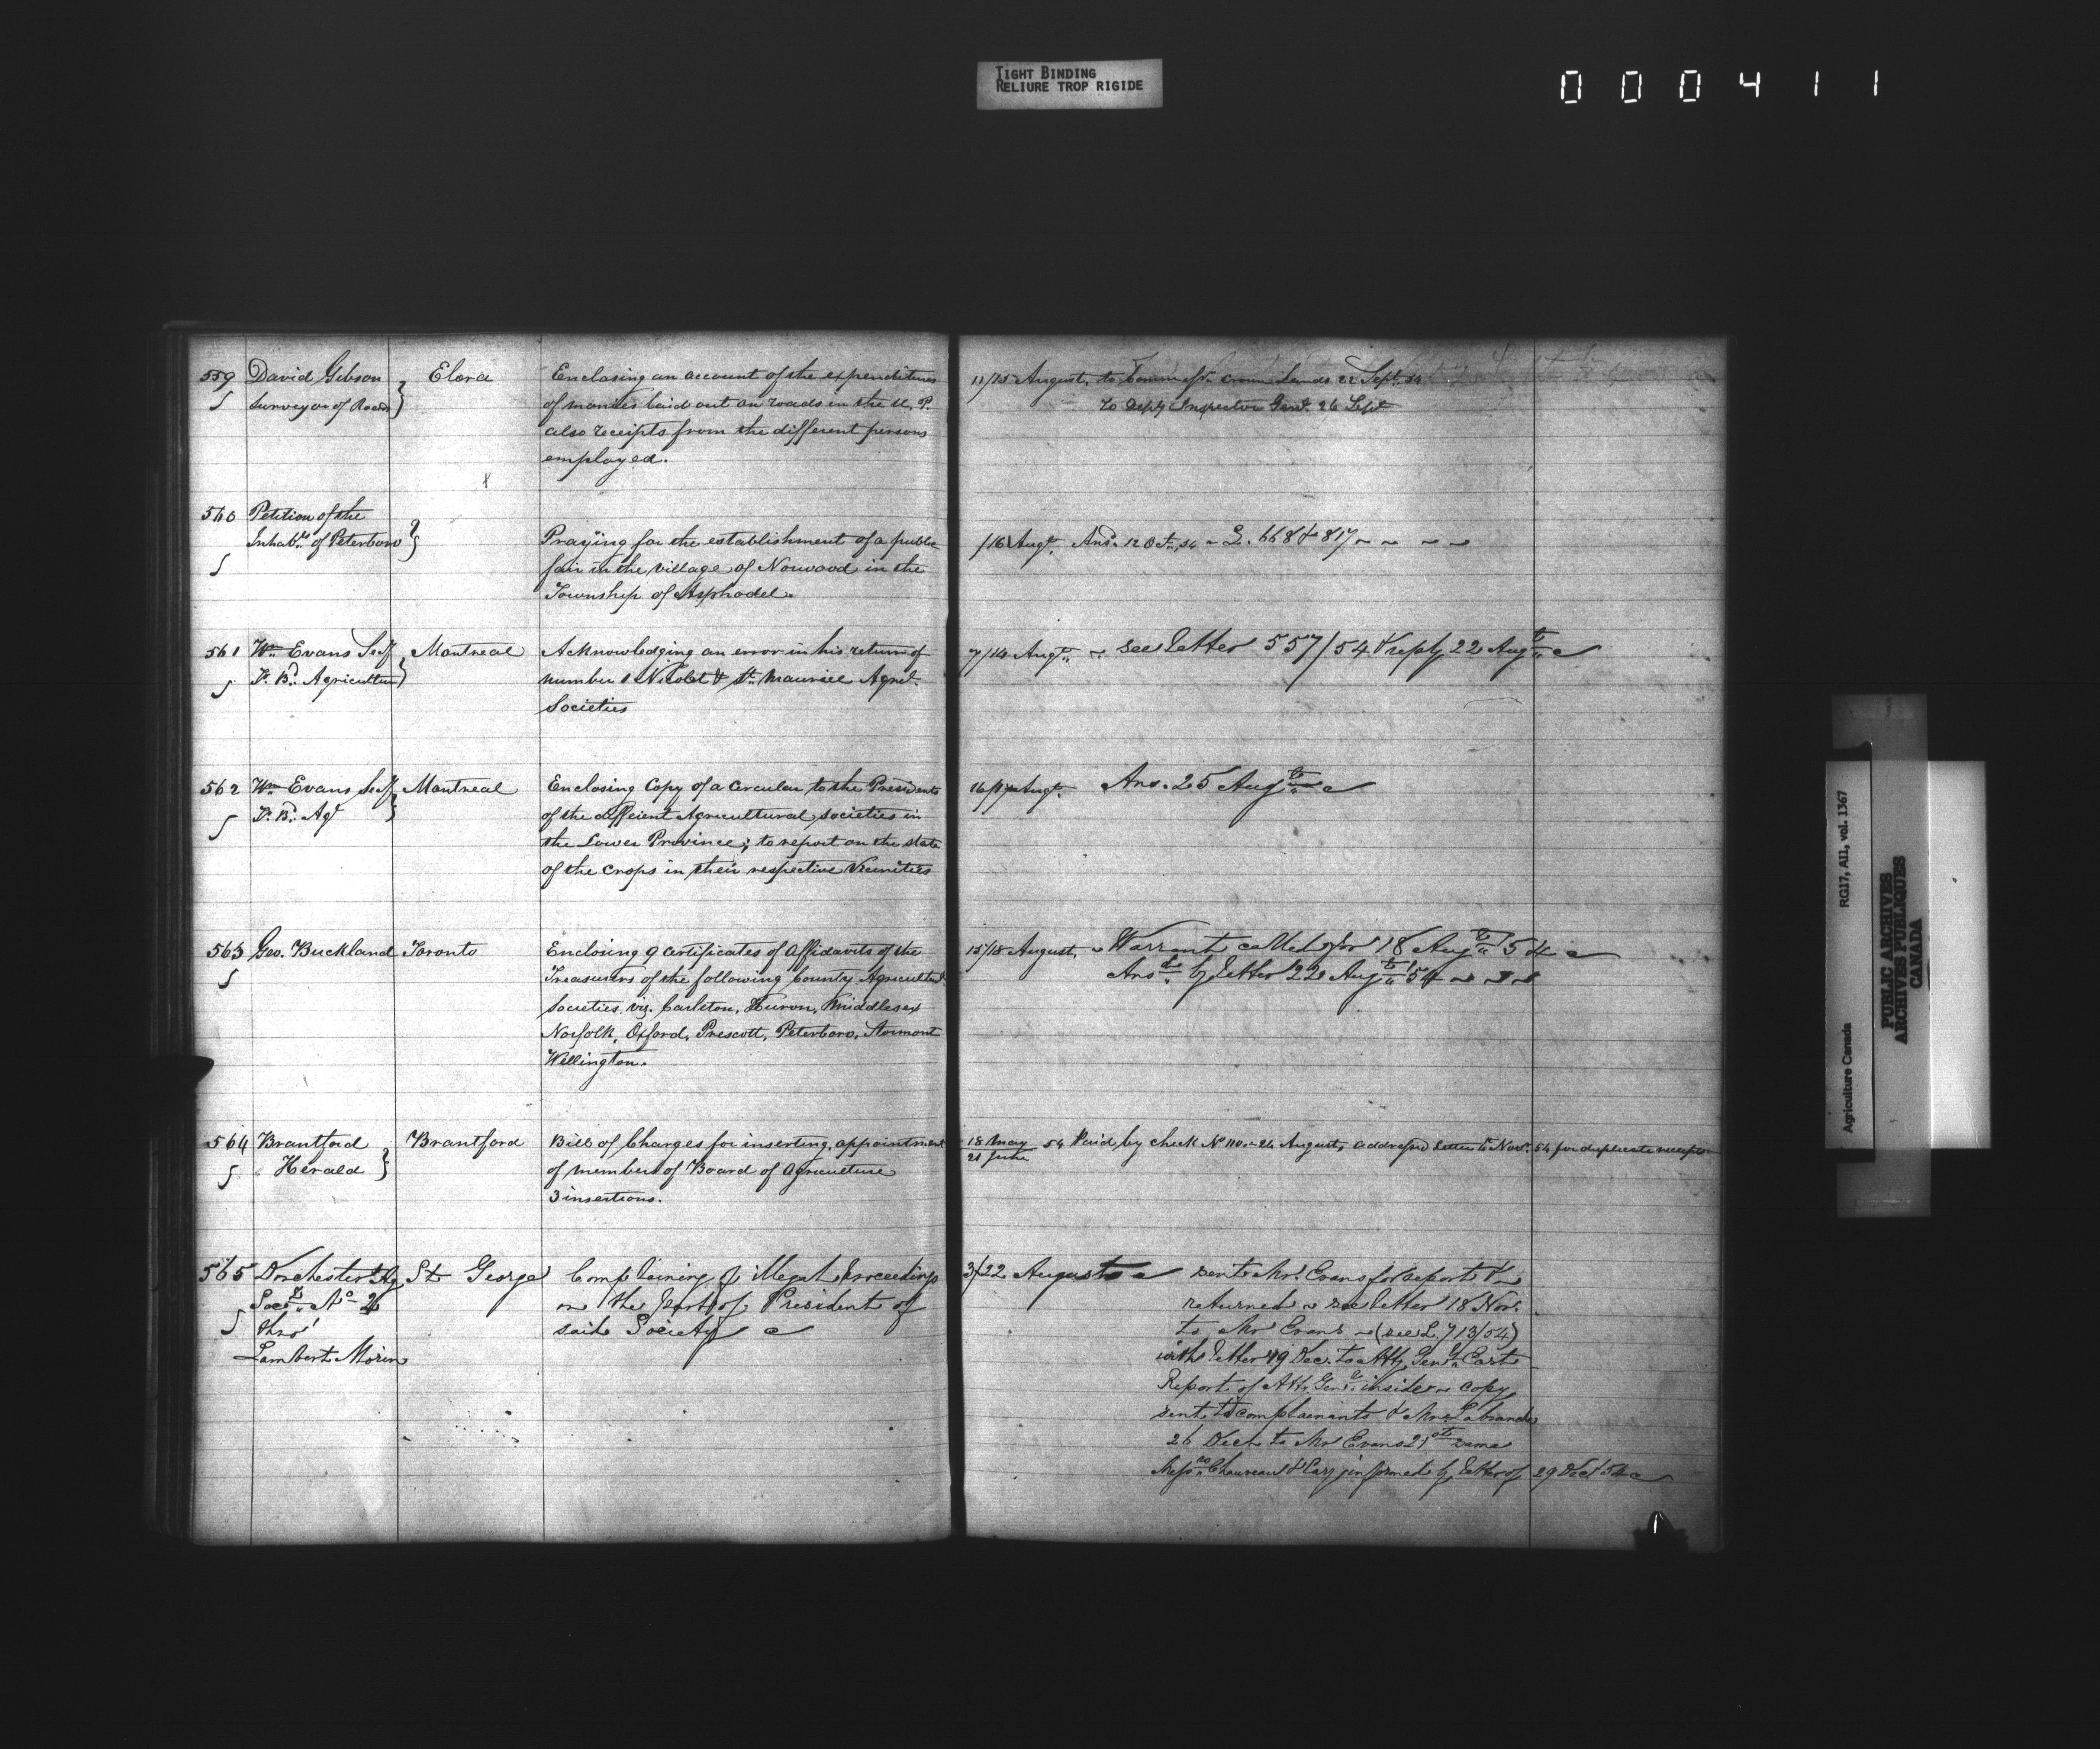 TIGHT BINDING
RELIURE TROP RIGIDE
000411
559 David Gibson Elora Enclosing an account of the expenditures
Surveyor of Roads of monies laid out on roads in the U. P.
also receipts from the different persons
employed.
11/15 August, to Commissr. Crown Lands 22 Sept. 54
To Depty Inspector Genl. 26 Sept
560 Petition of the
Inhabts. of Peterboro Praying for the establishment of a public
fair in the village of Norwood in the
Township of Asphodel.
/16 Augt. Ansd. 12 Oct. 54 L. 668 & 817
561 Wm Evans Secy Montreal Acknowledging an error in his return of
P. Bd. Agriculture number 1 Nicolet & St. Maurice Agricl.
Societies
7/14 Augt. see letter 557/54 & reply 22 Augt
562 Wm Evans Secy Montreal Enclosing Copy of a Circular to the Presidents
P. Bd. Agr of the different Agricultural societies in
the Lower Province; to report on the state
of the crops in their respective Vicinities
16/17 Augt. Ans. 25 Augt
563 Geo. Buckland Toronto Enclosing 9 certificates of Affidavits of the
Treasurers of the following County Agricultural
Societies viz. Carleton, Huron, Middlesex
Norfolk, Oxford, Prescott, Peterboro, Stormont
Wellington.
15/18 August, Warrant called for 18 Augt 54
Ansd by letter 22 Augt 54
564 Brantford Brantford Bill of Charges for inserting appointment
Herald of members of Board of Agriculture
3 insertions.
18 May
21 June 54 Paid by check No 110. 24 August, addressed letter Novr. 54 for duplicate receipts
565 Dorchester Ag St George Complaining of illegal proceedings
Socy No 2 on the part of President of
thro' said Society
Lambert Morin
3/22 August sent Mr. Evans for report &
returned see letter 18 Nov.
to Mr Evans (see L. 713/54)
with letter 19 Dec. to Atty Genl East
Report of Atty Genl inside copy
sent to complainants & Mr. Labranche
26 Dec to Mr Evans 21st same
Messrs Chauveau & informed by letter of 29 Dec 54
Agriculture Canada RG17, AII, vol. 1367
PUBLIC ARCHIVES
ARCHIVES PUBLIQUES
CANADA